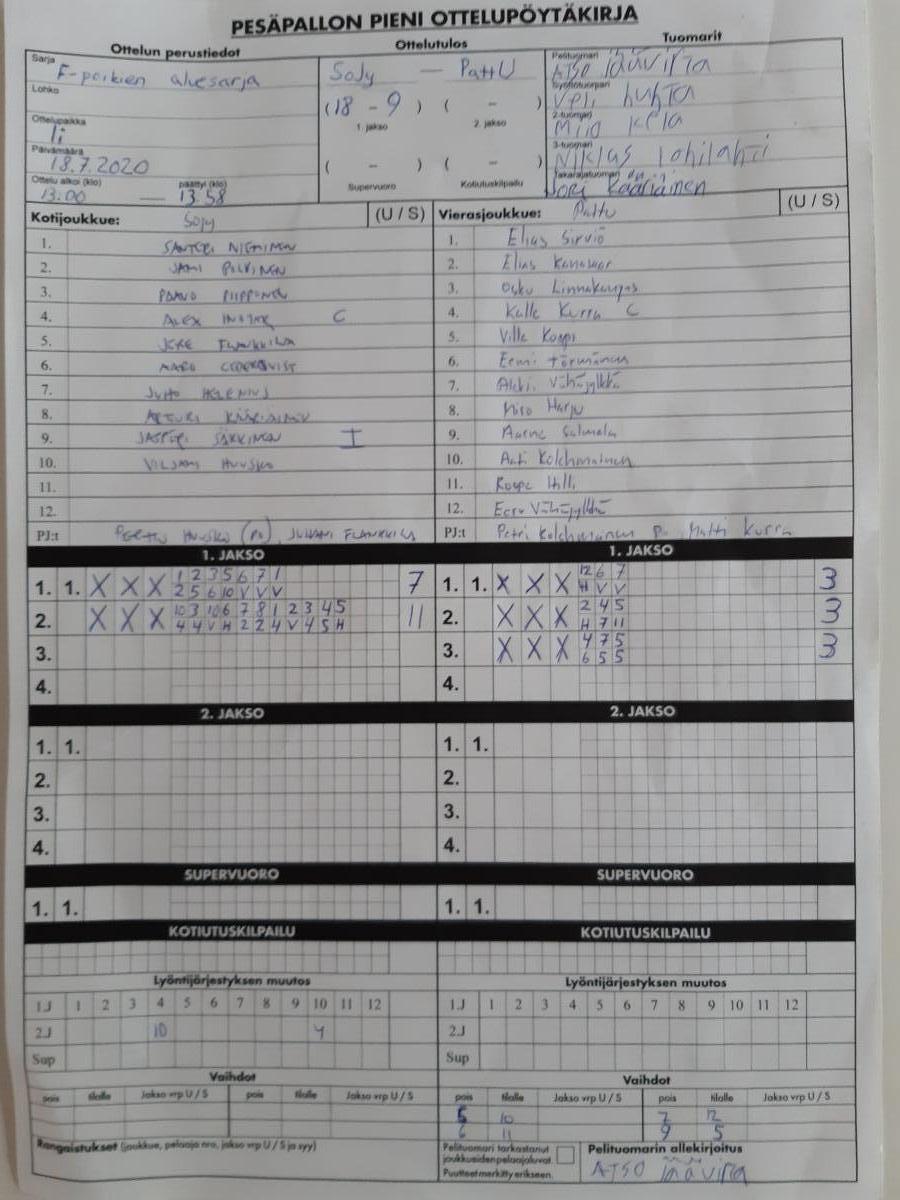 PESÄPALLON PIENI OTTELUPÖYTÄKIRJA
Ottelun perustiedot
Ottelutulos
Tuomarit
Sarja
F-poikien aluesarja
SoJy — PattU
Pelituomari
Lohko
(18 - 9) ( - )
1. jakso 2. jakso
Syöttötuomari
Ottelupaikka
Ii
2-tuomari
Päivämäärä
18.7.2020
( - ) ( - )
3-tuomari
Niklas Lohilahti
Ottelu alkoi (klo) päättyi (klo)
13.00 — 13.58
Supervuoro Kotiutuskilpailu
Takarajatuomari
Joni Kääriäinen
Kotijoukkue: SoJy (U / S)
Vierasjoukkue: Pattu (U / S)
1. SANTERI NIEMINEN
2. JAMI
3. PAAVO PIIPPONEN
4. ALEX C
5.
6. CEDERQVIST
7. JUHO HELENIUS
8. ARTTURI
9. SÄKKINEN I
10. VILJAMI HUUSKO
11.
12.
PJ:t HUUSKO JUHANI
1. Elias Sirviö
2. Elias
3. Osku Linnakangas
4. Kalle Kurra C
5. Ville Koepi
6. Eemi Törmänen
7. Vähäjylkkä
8. Niso Harju
9. Aarne Salmela
10. Anti Kolehmainen
11. Roope Hilli
12. Eero Vähäjylkkä
PJ:t Petri Kolehmainen Matti Kurra
1. JAKSO
1. 1. X X X 1 2 3 5 6 7 1 7
2 5 6 10 V V V
2. X X X 10 3 10 6 7 8 1 2 3 4 5 11
4 4 V H 2 2 4 V 4 5 H
3.
4.
1. JAKSO
1. 1. X X X 12 6 7 3
H V V
2. X X X 2 4 5 3
H 7 11
3. X X X 4 7 5 3
6 5 5
4.
2. JAKSO
1. 1.
2.
3.
4.
2. JAKSO
1. 1.
2.
3.
4.
SUPERVUORO
1. 1.
SUPERVUORO
1. 1.
KOTIUTUSKILPAILU
KOTIUTUSKILPAILU
Lyöntijärjestyksen muutos
1.J 1 2 3 4 5 6 7 8 9 10 11 12
2.J 10 4
Sup
Lyöntijärjestyksen muutos
1.J 1 2 3 4 5 6 7 8 9 10 11 12
2.J
Sup
Vaihdot
pois tilalle Jakso vrp U / S pois tilalle Jakso vrp U / S
Vaihdot
pois tilalle Jakso vrp U / S pois tilalle Jakso vrp U / S
5 10 7 12
6 11 9 5
Rangaistukset (joukkue, pelaaja nro, jakso vrp U / S ja syy)
Pelituomari tarkastanut
joukkueiden pelaajaluvat.
Puutteet merkitty erikseen.
Pelituomarin allekirjoitus